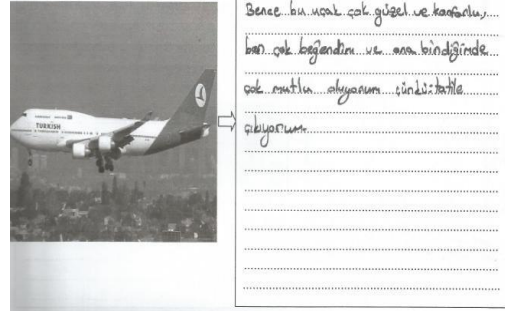 TURKISH
Bence bu uçak çok güzel ve konforlu,
ben çok beğendim ve ona bindiğimde
çok mutlu oluyorum çünkü tatile
çıkıyorum.